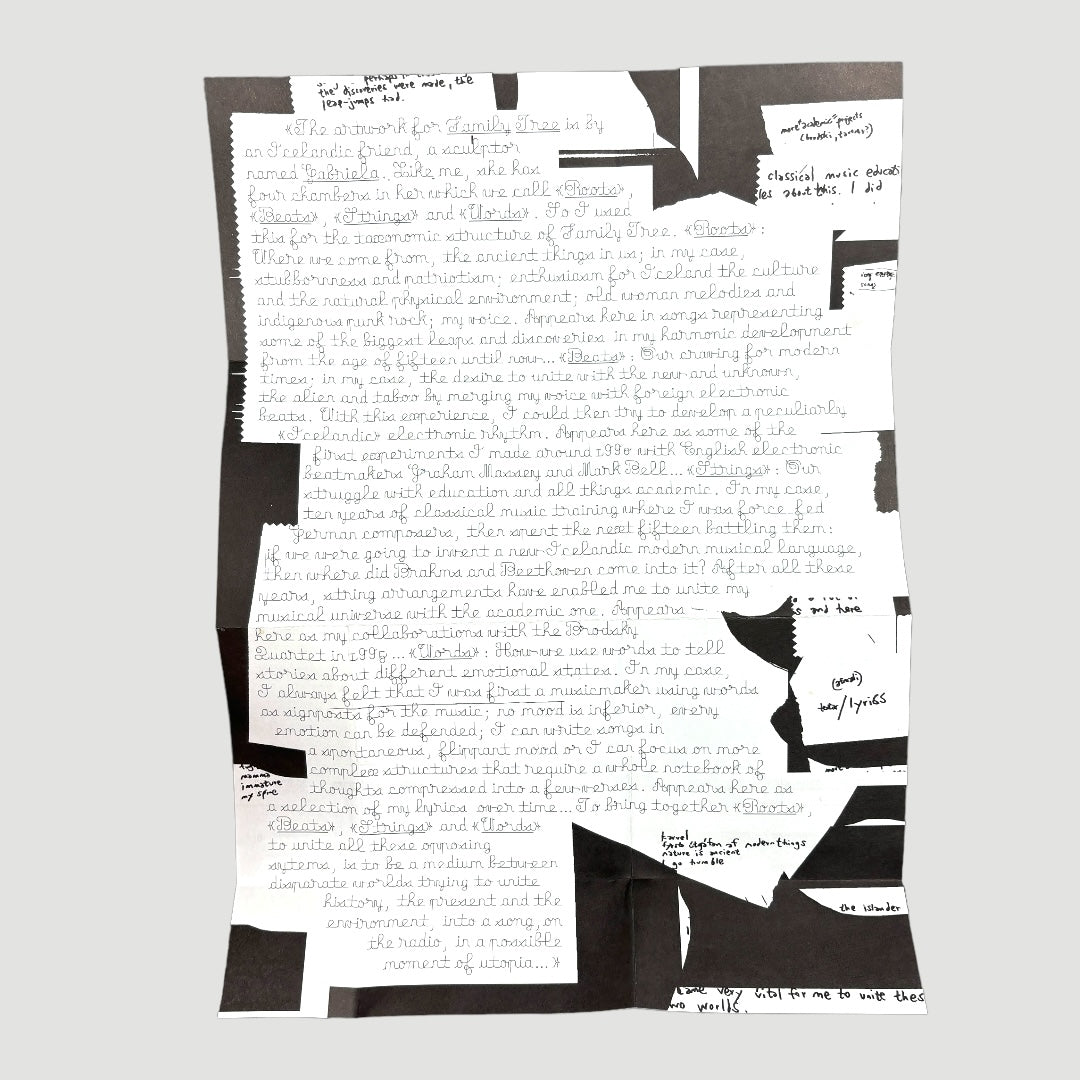 the discoveries were made, the
leap-jumps had.
«The artwork for Family Tree is by
an Icelandic friend, a sculptor
named Gabriela. Like me, she has
four chambers in her which we call «Roots»,
«Beats», «Strings» and «Words». So I used
this for the taxonomic structure of Family Tree. «Roots»:
Where we come from, the ancient things in us; in my case,
stubbornness and patriotism; enthusiasm for Iceland the culture
and the natural physical environment; old woman melodies and
indigenous punk rock; my voice. Appears here in songs representing
some of the biggest leaps and discoveries in my harmonic development
from the age of fifteen until now... «Beats»: Our craving for modern
times; in my case, the desire to unite with the new and unknown,
the alien and taboo by merging my voice with foreign electronic
beats. With this experience, I could then try to develop a peculiarly
«Icelandic» electronic rhythm. Appears here as some of the
first experiments I made around 1990 with English electronic
beatmakers Graham Massey and Mark Bell... «Strings»: Our
struggle with education and all things academic. In my case,
ten years of classical music training where I was force fed
German composers, then spent the next fifteen battling them:
if we were going to invent a new Icelandic modern musical language,
then where did Brahms and Beethoven come into it? After all these
years, string arrangements have enabled me to unite my
musical universe with the academic one. Appears —
here as my collaborations with the Brodsky
Quartet in 1995 ... «Words»: How we use words to tell
stories about different emotional states. In my case,
I always felt that I was first a musicmaker using words
as signposts for the music; no mood is inferior, every
emotion can be defended; I can write songs in
a spontaneous, flippant mood or I can focus on more
complex structures that require a whole notebook of
thoughts compressed into a few verses. Appears here as
a selection of my lyrics over time... To bring together «Roots»,
«Beats», «Strings» and «Words»
to unite all these opposing
sytems, is to be a medium between
disparate worlds trying to unite
history, the present and the
environment, into a song, on
the radio, in a possible
moment of utopia...»
more "academic" projects
classical music educati
les about this. I did
songs
s and here
/lyrics
mamma
immature
my spine
karvel
of modern things
nature is ancient
go humble
the islander
came very vital for me to unite thes
wo worlds.